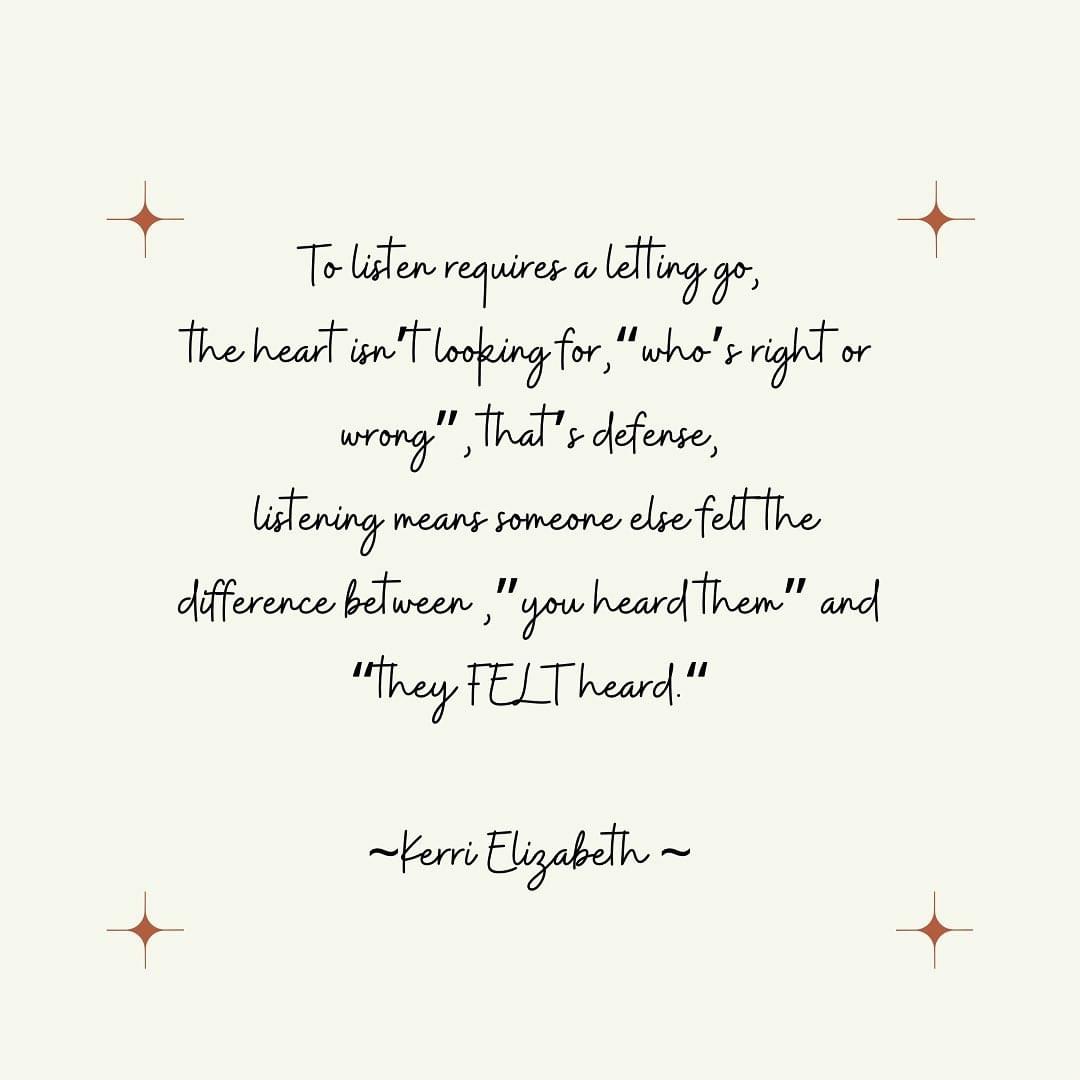 To listen requires a letting go,
the heart isn't looking for,“who's right or
wrong”,that's defense,
listening means someone else felt the
difference between ,”you heard them” and
“they FELT heard.“
~Kerri Elizabeth ~